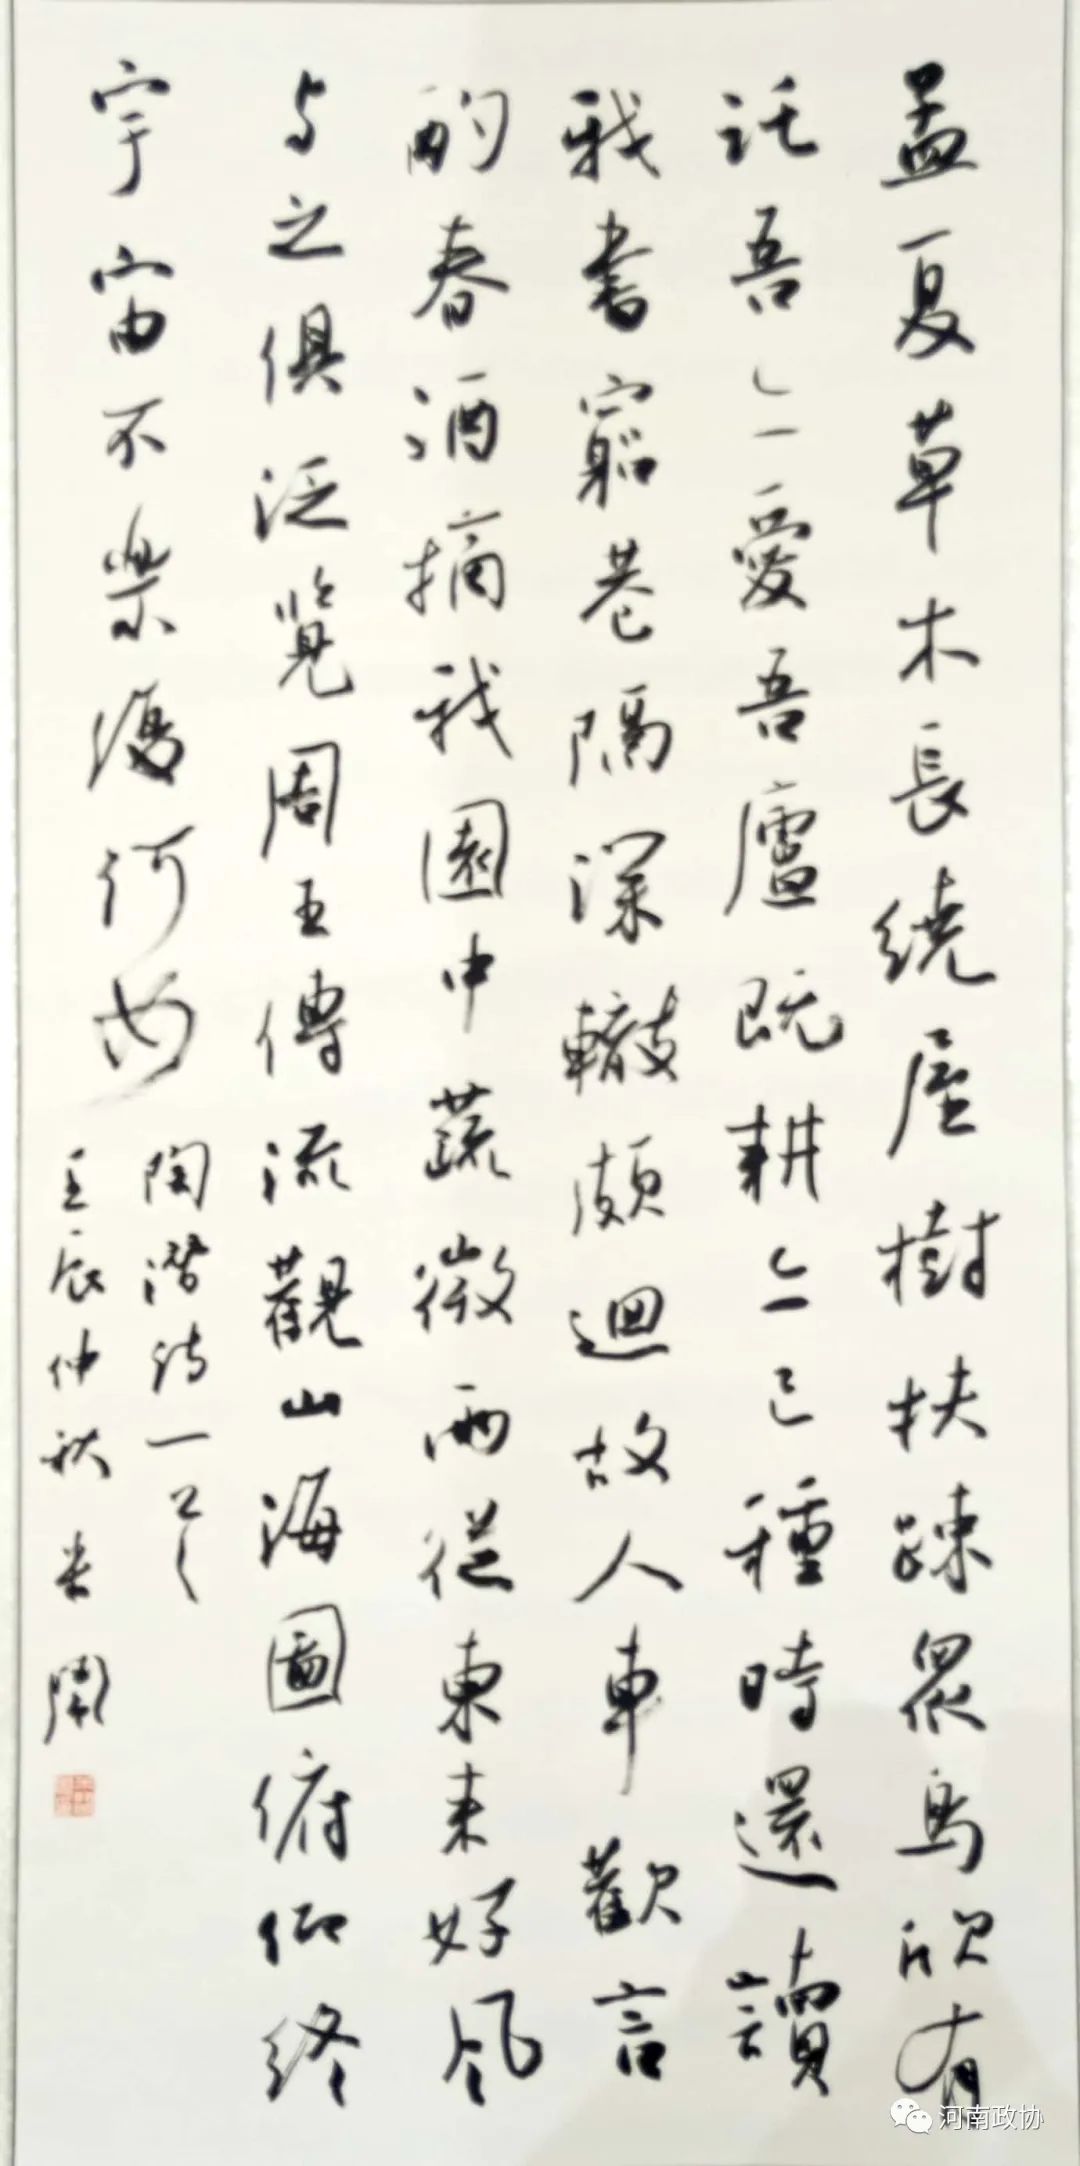 孟夏草木長繞屋樹扶疎眾鳥欣有
託吾亦愛吾廬既耕亦已種時還讀
我書窮巷隔深轍頗迴故人車歡言
酌春酒摘我園中蔬微雨從東来好風
与之俱泛覽周王傳流觀山海圖俯仰終
宇宙不樂復何如
陶潛詩一首
壬辰仲秋
河南政协